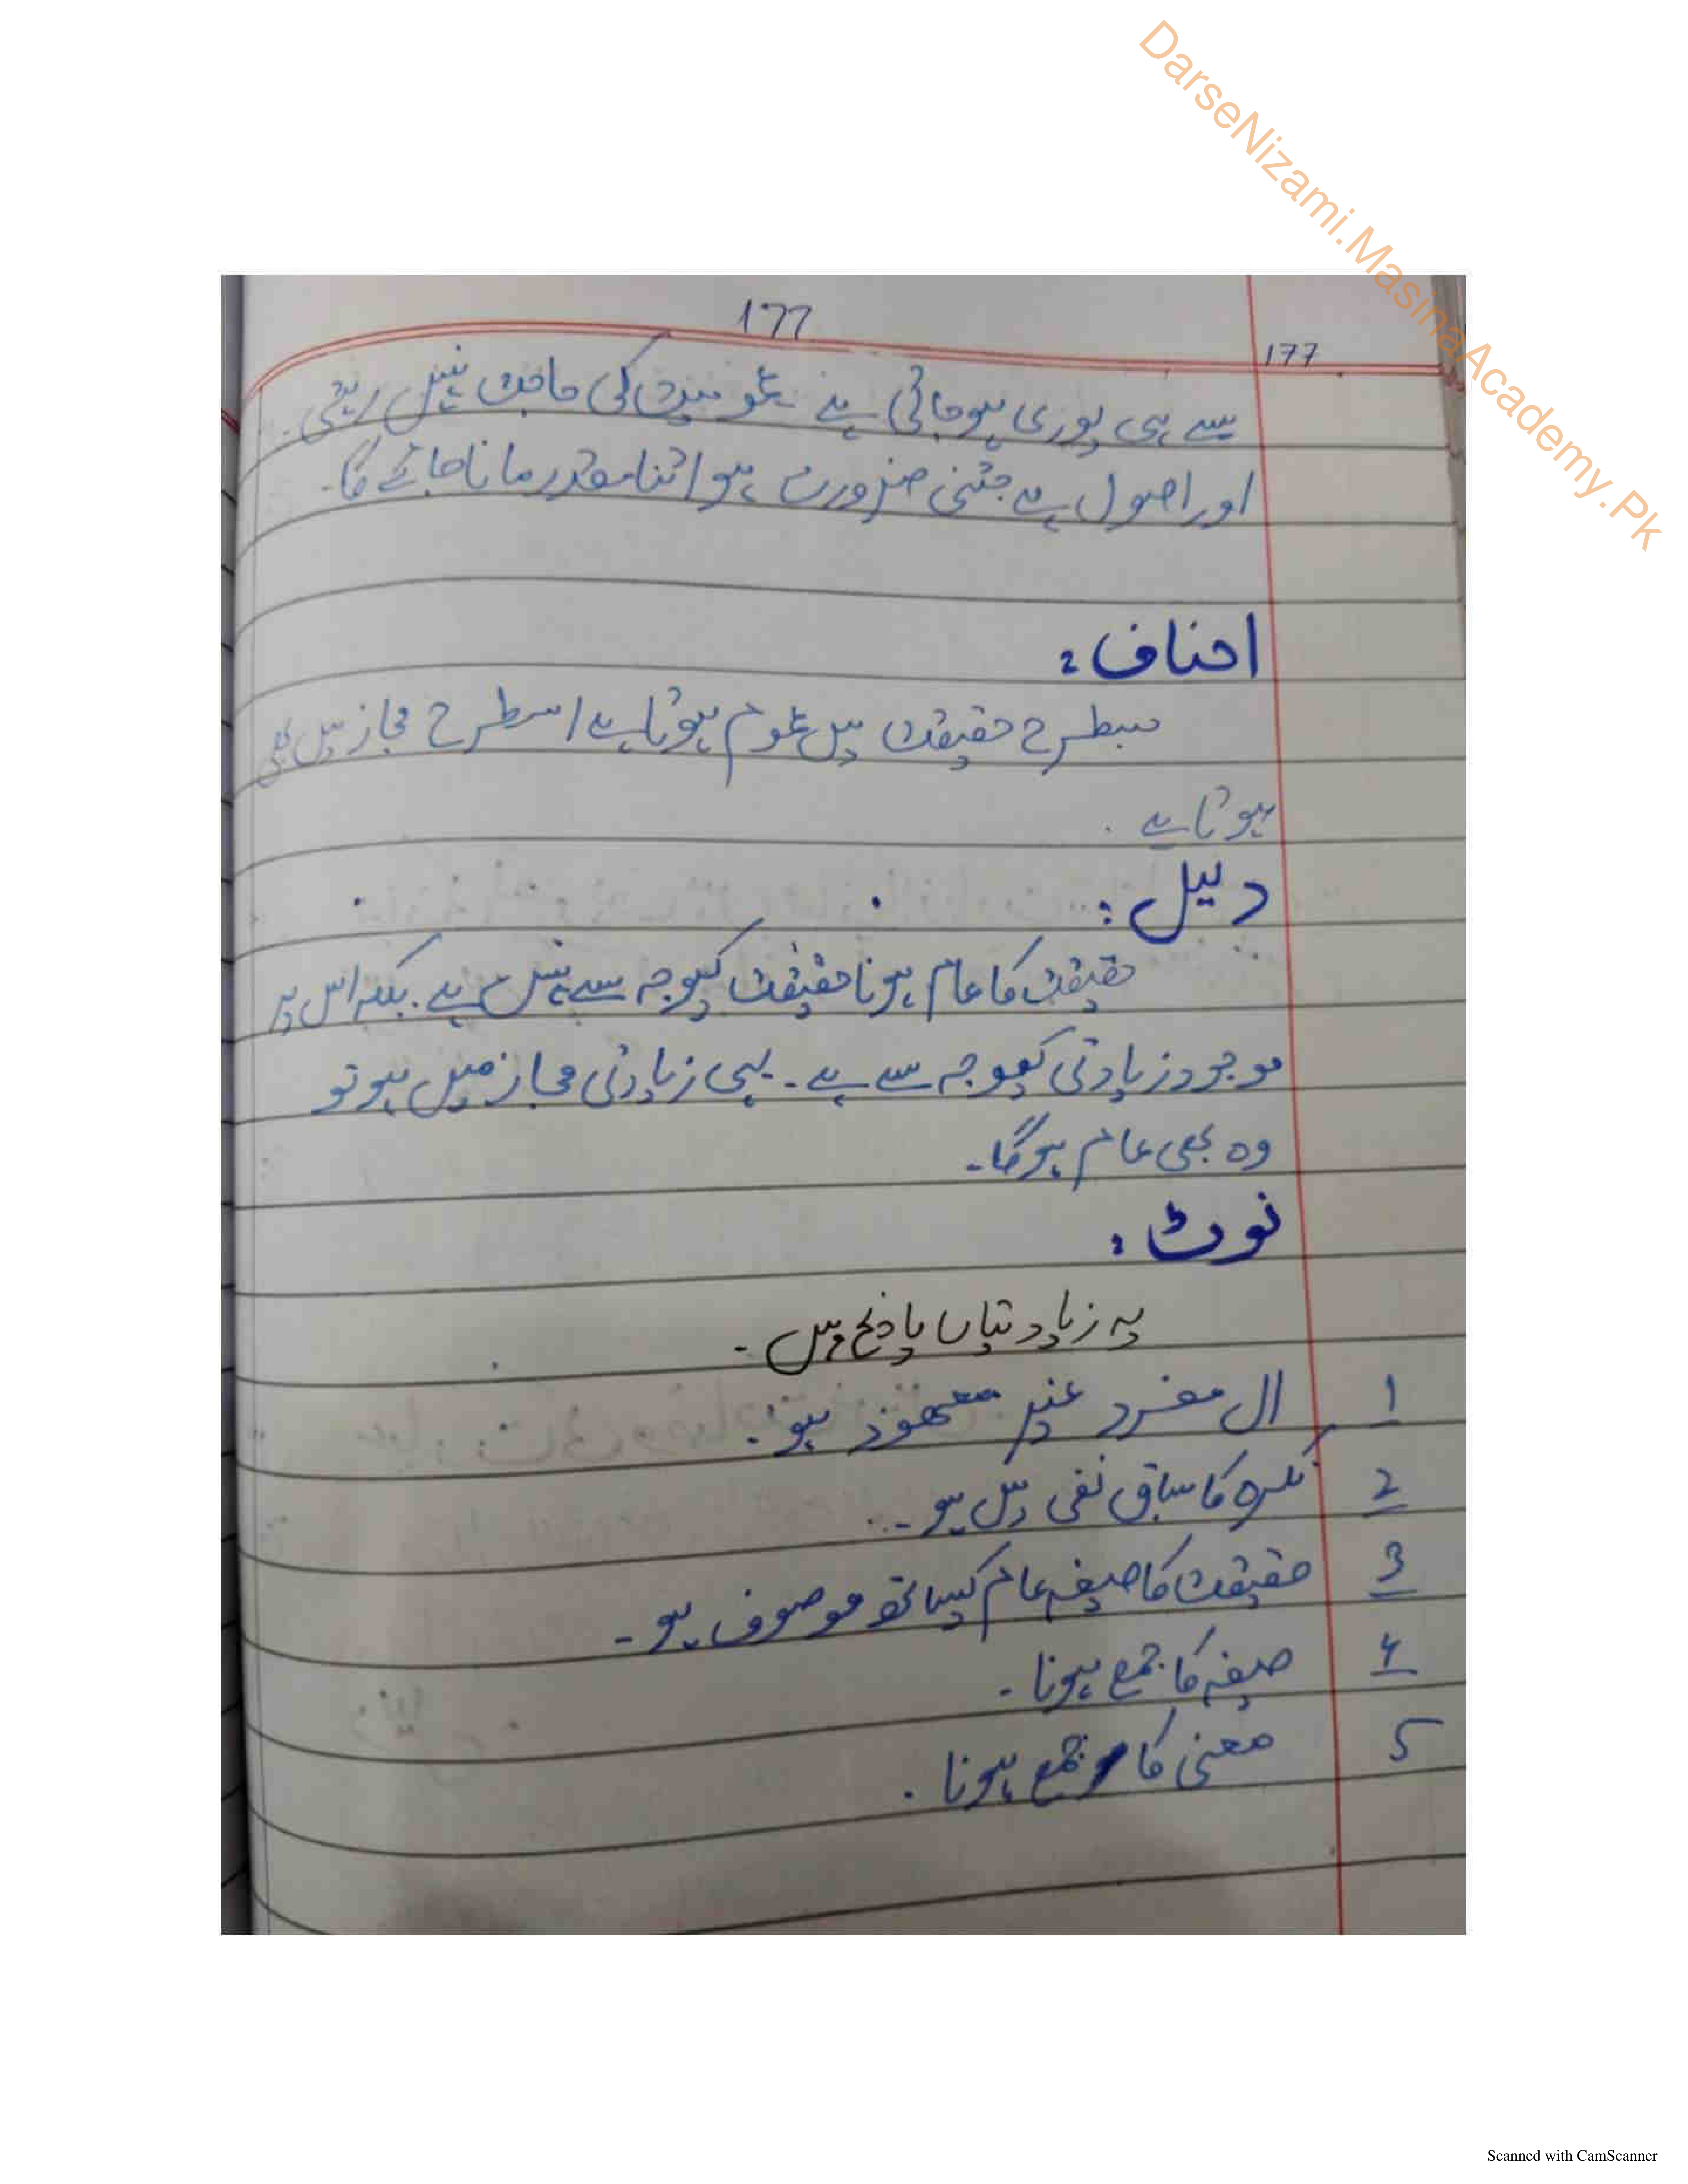 DarseNizami.MasinaAcademy.Pk
177
177
سے ہی پوری ہو جاتی ہے عمومیت کی حاجت نہیں رہتی۔
اور اصول ہے جتنی ضرورت ہو اتنا مقدر مانا جائے گا۔
احناف:
جسطرح حقیقت میں عموم ہوتا ہے اسطرح مجاز میں بھی
ہوتا ہے۔
دلیل:
حقیقت کا عام ہونا حقیقت کیوجہ سے نہیں ہے۔ بلکہ اس پر
موجود زیادتی کیوجہ سے ہے۔ یہی زیادتی مجاز میں ہو تو
وہ بھی عام ہوگا۔
نوٹ:
یہ زیادتیاں پانچ ہیں۔
1 ال مفرد غیر معھود ہو۔
2 نکرہ کا سیاق نفی میں ہو۔
3 حقیقت کا صیغہ عام کیساتھ موصوف ہو۔
4 صیغہ کا جمع ہونا۔
5 معنی کا جمع ہونا۔
Scanned with CamScanner